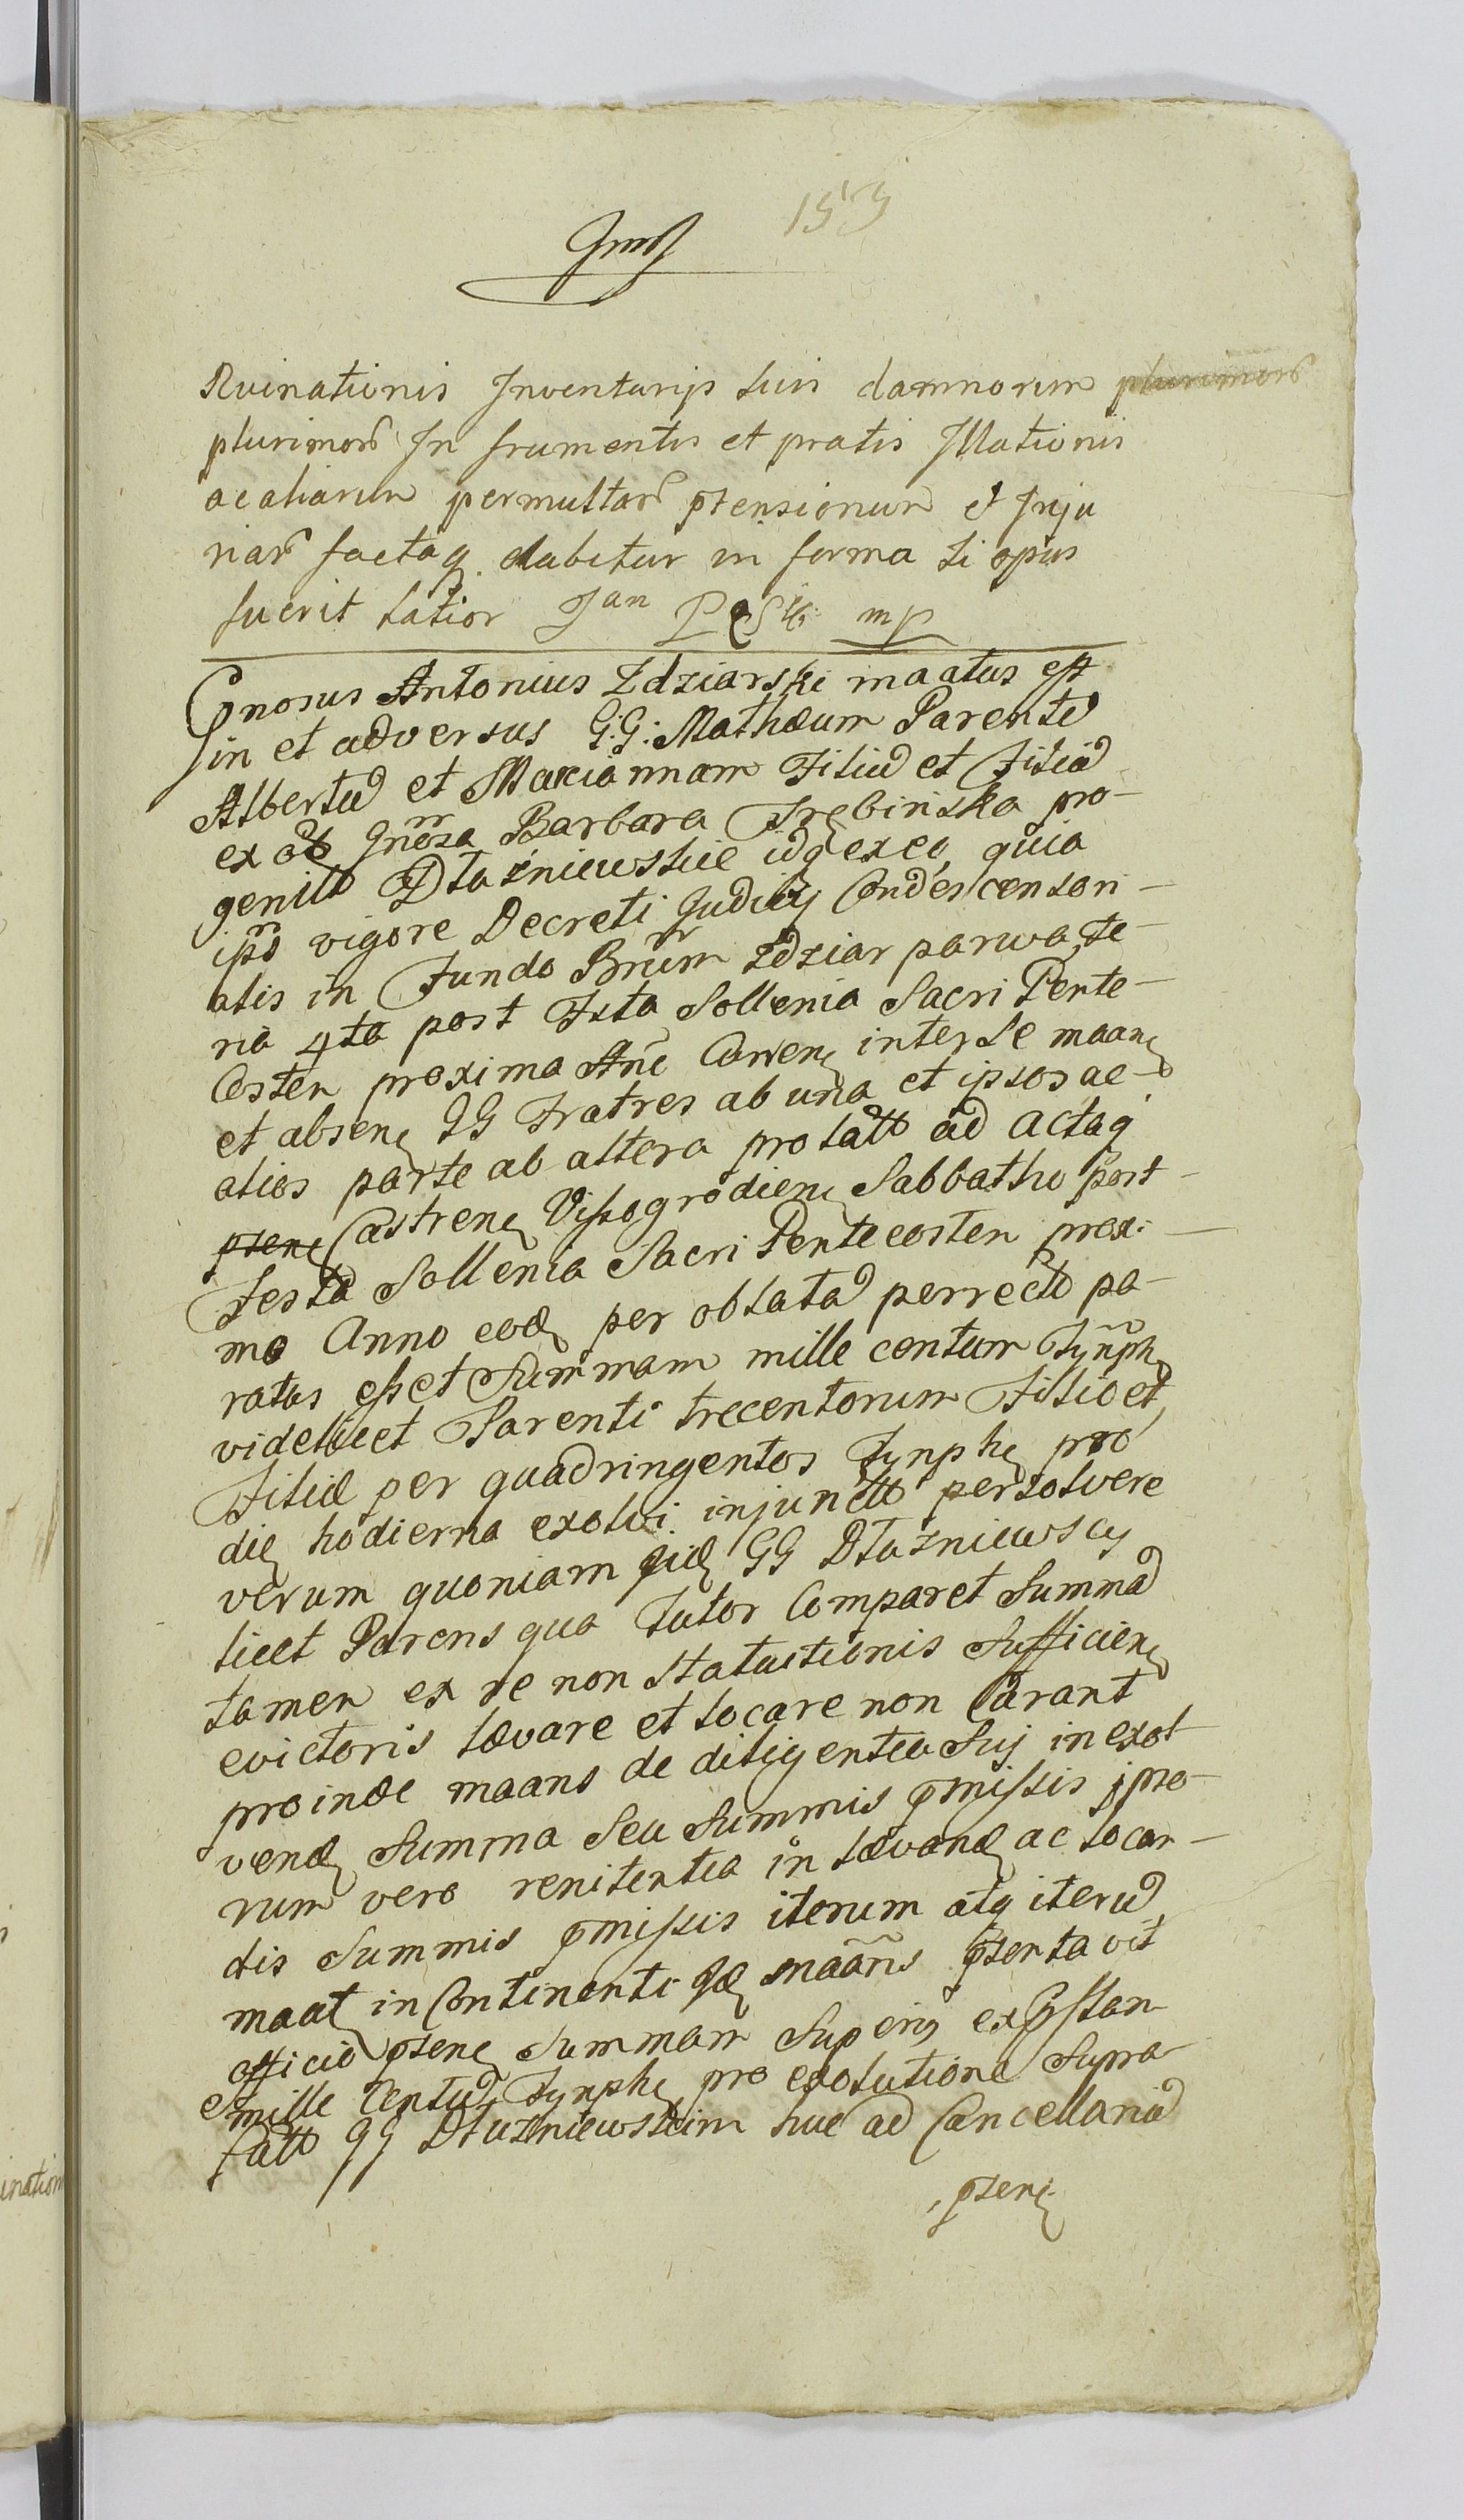 153
Ruinationis Inventarys sui damnorum plurimor
plurimor In frumentis et pratis Illationis
ac aliarum permultar ptensionum et Inju
riar factaq. dabitur in forma si opus
fuerit latior Jan mp
Gnosus Antonius Zdziarski maatus est
in et adversus G:G: Mathæum Parente
Albertu et Mariannam Filiu et Filia
ex Gnosa Barbara Trębinska pro-
genit Dłużniewskie idq ex eo, quia
ips vigore Decreti Judicy Condescensori-
alis in Fundo Brum Zdziar parwa, Fe-
ria 4ta post Festa Sollenia Sacri Pente-
Costen proxima Ane Curren inter se maan
et absen GG Fratres ab una et ipsos ac-
alios parte ab altera prolatt ad Actaq
psen Castren Vissogrodien Sabbatho post-
Festa Sollenia Sacri Pentecosten prox:-
mo Anno eod per oblata perrecto pa-
ratus esset Summam mille centum Tynph
videlicet Parenti trecentorum Filio et
Filiæ per quadringentos Tynph pro
die hodierna exolvi injunctt persolvere
verum quoniam iid GG Dłużniewscy
licet Parens qua Tutor Comparet Summa
tamen ex re non statuitionis Sufficien
evictoris levare et locare non Curant
proinde maans de diligentia Suj in exol
vend Summa Seu Summis pmissis ipso-
rum vero renitentia in levand ac locan-
dis Summis pmissis iterum atq iteru
maat in Continenti Id maans psentavit
officio psen Summam Superius expssan
mille Centu Tynph pro exolutione Supra
fatt GG Dłużniewskim huc ad Cancellaria
psen